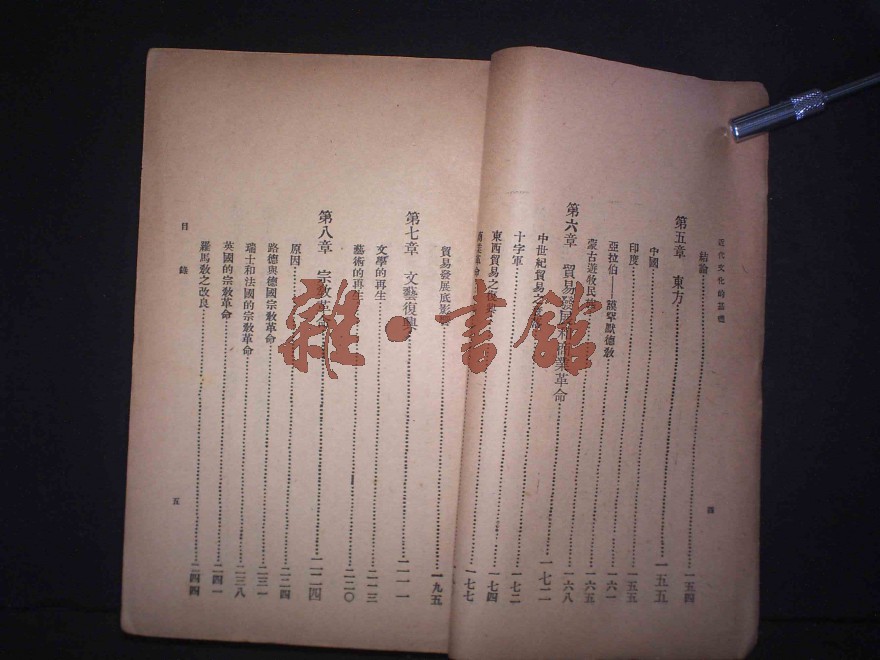 近代文化的基礎
結論 一五四
第五章 東方 一五五
中國 一五五
印度 一五五
亞拉伯——謨罕默德教 一六一
蒙古遊牧民 一六五
第六章 貿易發展和商業革命 一六八
中世紀貿易之 一七二
十字軍 一七二
東西貿易之 一七四
商業革命 一七七
四
貿易發展底影 一九五
第七章 文藝復興 二一一
文學的再生 二一三
藝術的再生 二二〇
第八章 宗教革命 二二四
原因 二二四
路德與德國宗教革命 二三一
瑞士和法國的宗教革命 二三八
英國的宗教革命 二四一
羅馬教之改良 二四四
目錄
五
雜·書館